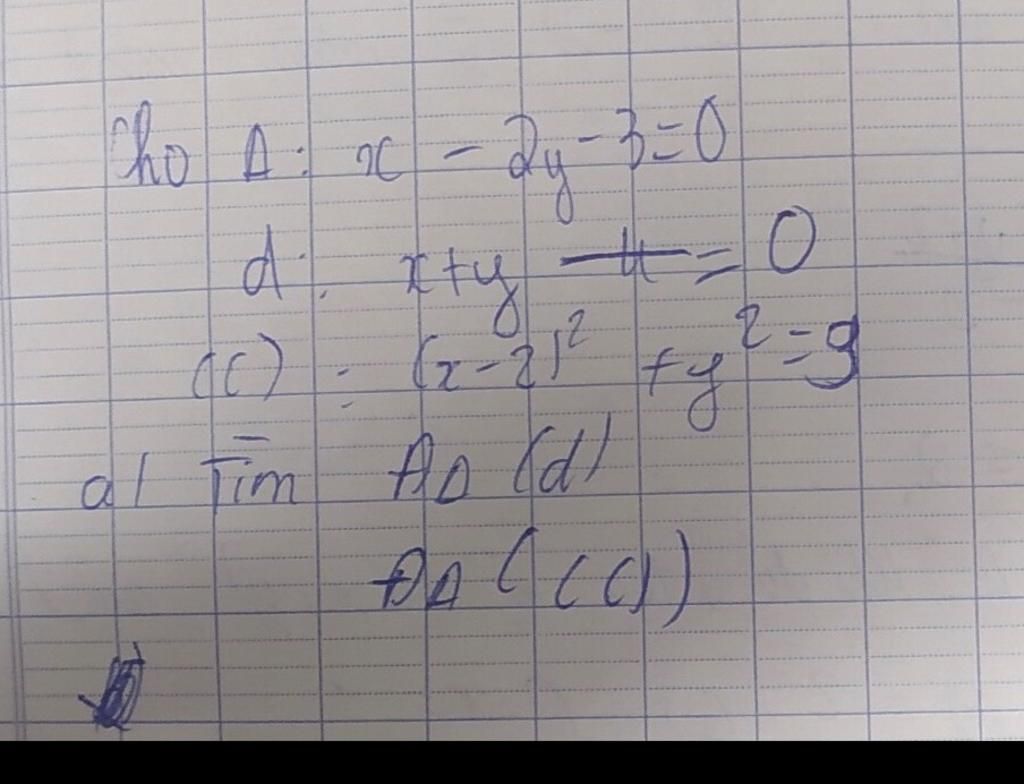 Cho Δ: x - 2y - 3 = 0
d: x + y - 4 = 0
(C): (x - 2)² + y² = 9
a/ Tìm ĐΔ (d)
ĐΔ ((C))